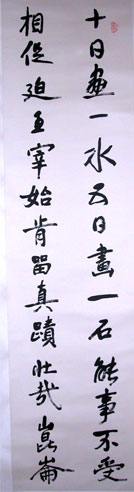 十日畫一水五日畫一石能事不受
相促迫王宰始肯留真蹟壯哉崑崙